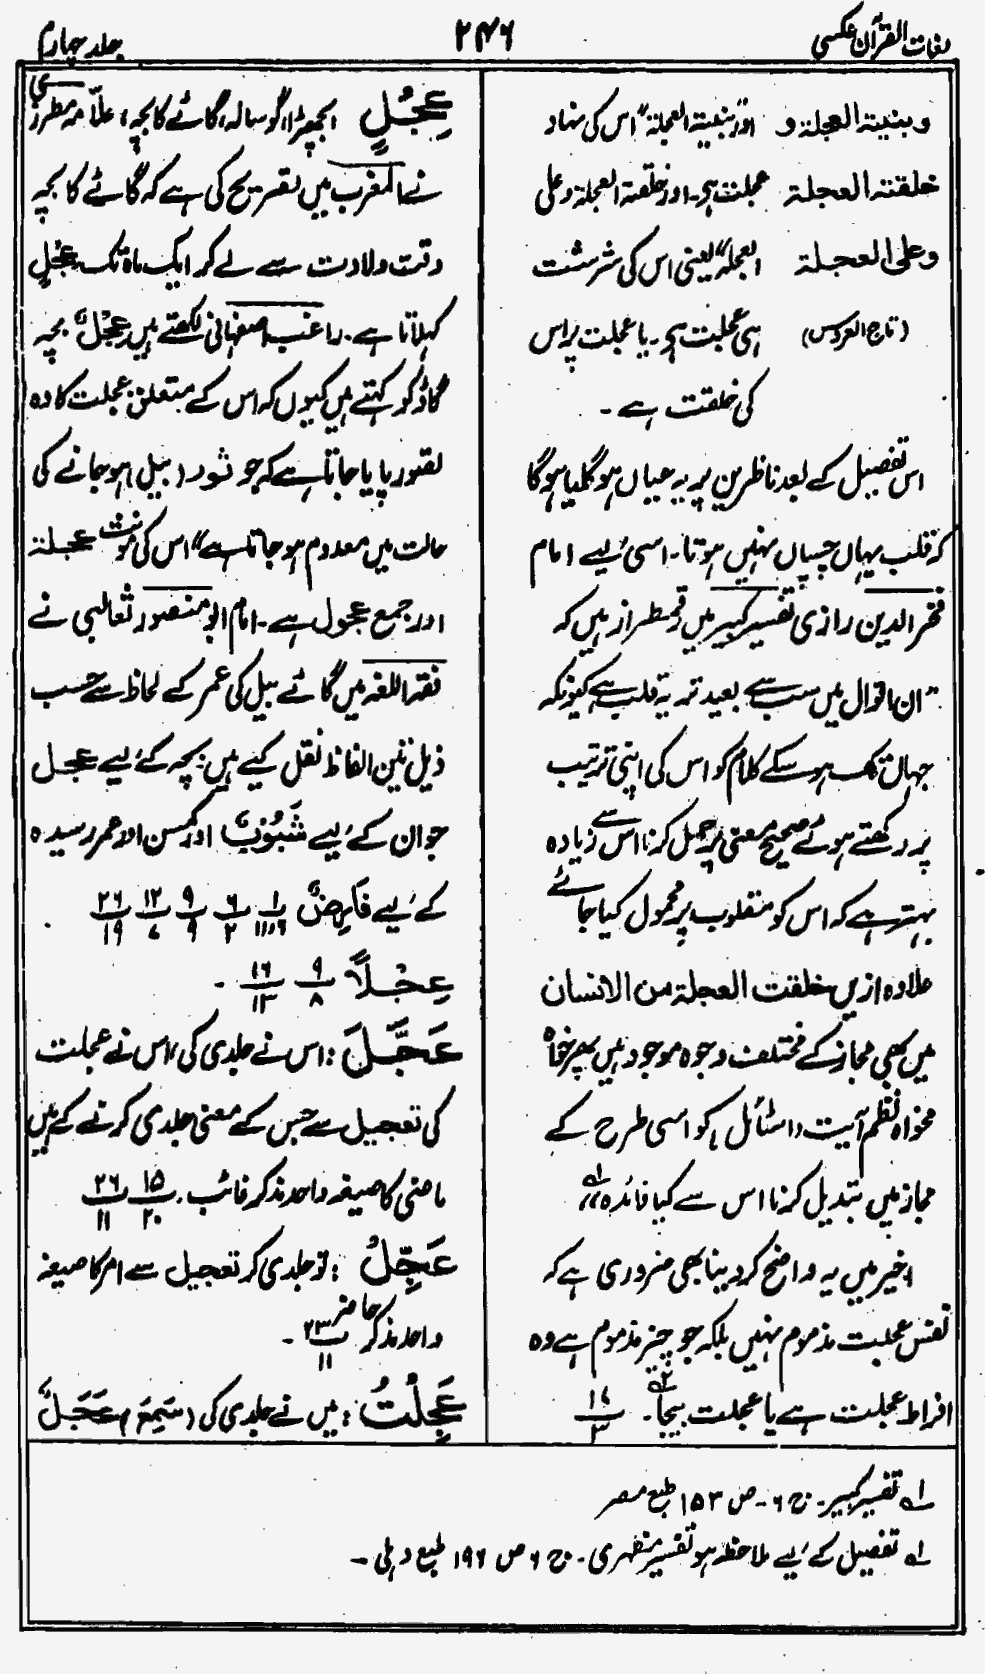 لغات القرآن عکسی
۲۴۶
جلد چہارم
وبنیته العجلة و اور بنیتہ العجلة" اس کی بنیاد
خلقته العجلة عجلت ہی۔ اور خلقتہ العجلة وعلی
وعلی العجلة العجلة" یعنی اس کی سرشت
(تاج العروس) ہی عجلت ہی۔ یا عجلت پر اس
کی خلقت ہے۔
اس تفصیل کے بعد ناظرین پر یہ عیاں ہو گیا ہوگا
کہ قلب یہاں چسپاں نہیں ہوتا۔ اسی لیے امام
فخر الدین رازی تفسیر کبیر میں رقمطراز ہیں کہ
"ان اقوال میں سب سے بعید تر یہ قلب ہے کیونکہ
جہاں تک ہو سکے کلام کو اس کی اپنی ترتیب
پر رکھتے ہوئے صحیح معنی پر حمل کرنا اس سے زیادہ
بہتر ہے کہ اس کو مقلوب پر محمول کیا جائے
علاوہ ازیں خلقت العجلة من الانسان
میں بھی مجاز کے مختلف وجوہ موجود ہیں پھر خواہ
مخواہ نظم آیت و اسٹائل کو اسی طرح کے
مجاز میں تبدیل کرنا اس سے کیا فائدہ" لہ
اخیر میں یہ واضح کر دینا بھی ضروری ہے کہ
نفس عجلت مذموم نہیں بلکہ جو چیز مذموم ہے وہ
افراط عجلت ہے یا عجلت بیجا۔ ۲ہ ۱۷/۳
عِجْلٍ بچھڑا، گوسالہ، گائے کا بچہ، علامہ مطرزی
نے المغرب میں تصریح کی ہے کہ گائے کا بچہ
وقت ولادت سے لے کر ایک ماہ تک عِجْلٍ
کہلاتا ہے۔ راغب اصفہانی لکھتے ہیں عِجْلٌ بچہ
گاؤ کو کہتے ہیں کیوں کہ اس کے متعلق عجلت کا وہ
تصور پایا جاتا ہے کہ جو ثور (بیل) ہو جانے کی
حالت میں معدوم ہو جاتا ہے" اس کی مونث عجلة
اور جمع عجول ہے۔ امام ابو منصور ثعالبی نے
فقہ اللغہ میں گائے بیل کی عمر کے لحاظ سے حسب
ذیل تین الفاظ نقل کیے ہیں: بچہ کے لیے عجل
جوان کے لیے شَبُوْبٌ اور کمسن اور عمر رسیدہ
کے لیے فَارِضٌ ۱/۶،۱۱ ۶/۲ ۹/۹ ۱۲/۷ ۲۶/۱۹
عِجْلًا ۹/۸ ۱۶/۱۳ ۔
عَجَّلَ : اس نے جلدی کی، اس نے عجلت
کی تعجیل سے جس کے معنی جلدی کرنے کے ہیں
ماضی کا صیغہ واحد مذکر غائب۔ ۱۵/۲۰ ۲۶/۱۱
عَجِّلْ : تو جلدی کر تعجیل سے امر کا صیغہ
واحد مذکر حاضر ۲۳/۱۱ ۔
عَجِلْتُ : میں نے جلدی کی (سَمِعَ) عَجَلٌ
لہ تفسیر کبیر۔ ج ۶۔ ص ۱۵۳ طبع مصر
لہ تفصیل کے لیے ملاحظہ ہو تفسیر مظہری۔ ج ۶ ص ۱۹۶ طبع دہلی۔